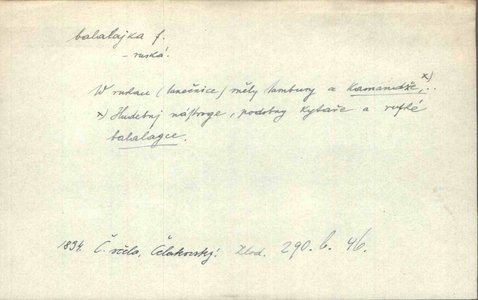 balalajka f.
- ruská.
W rukau (tanečnice) měly tambury a kamandže, x)..
x) Hudebnj nástroge, podobny kytaře a ruské
balalagce.
1834. Č. včela, Čelakovský: Zlod. 290. b. 46.